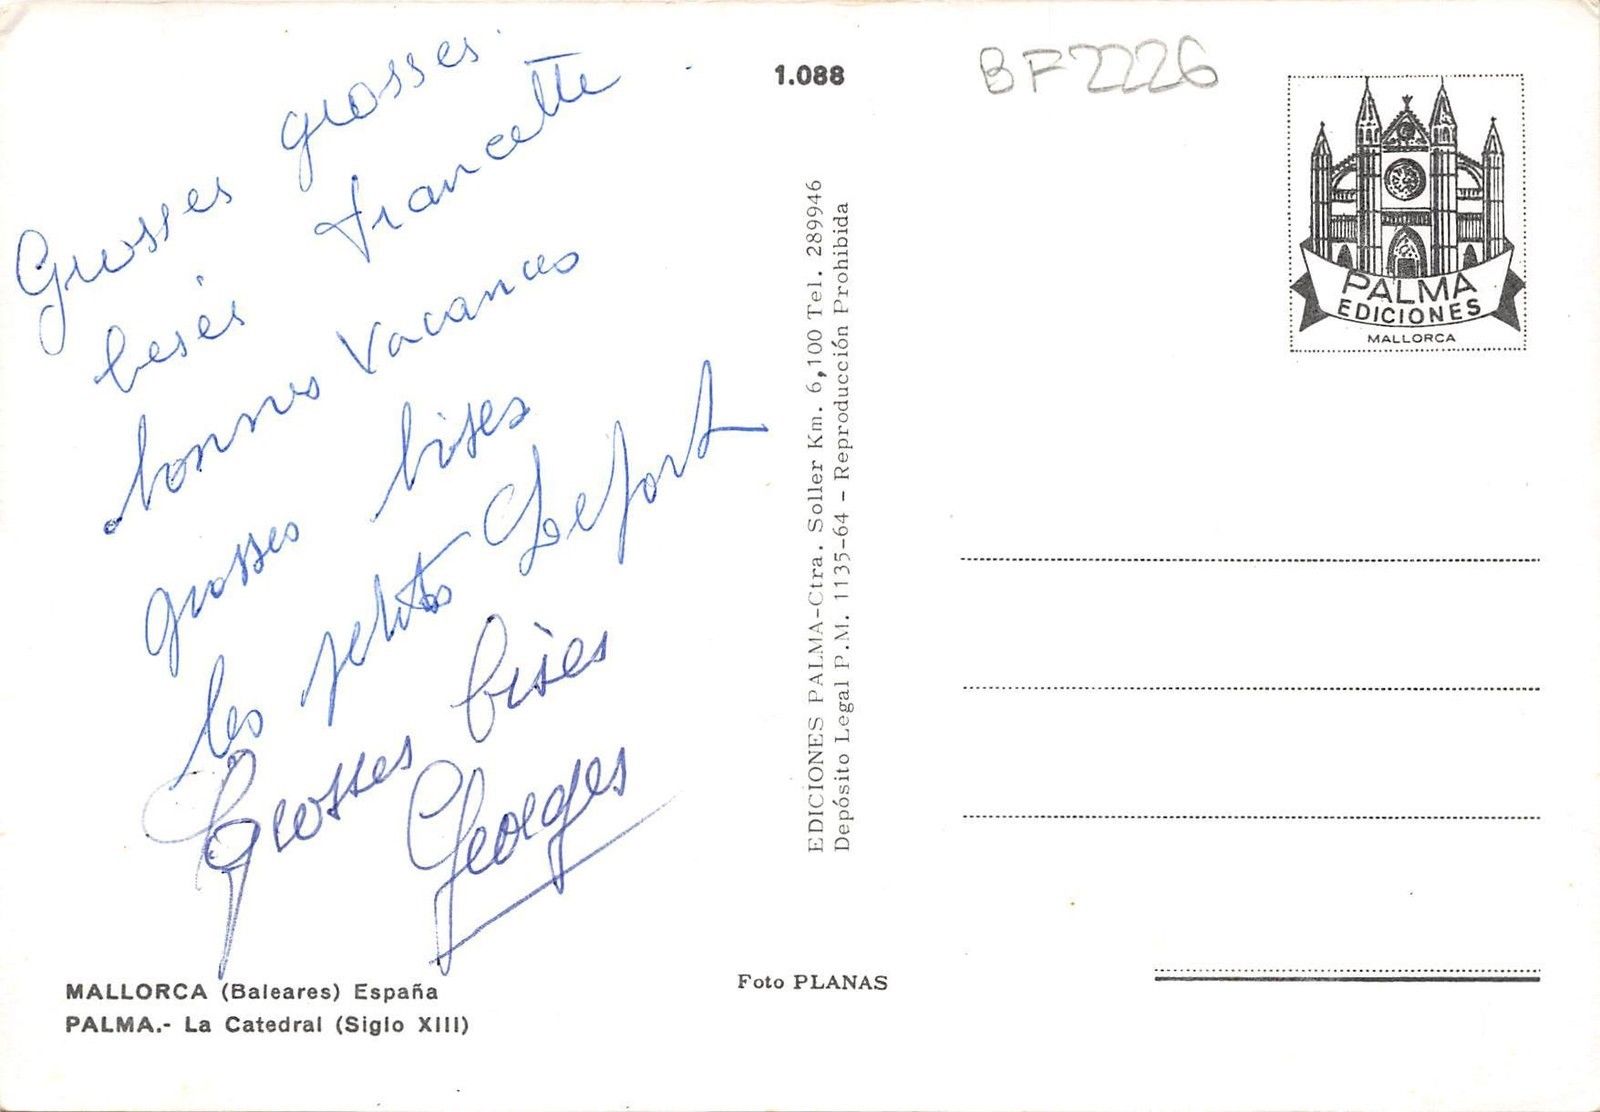 Grosses grosses
besés Francette
bonnes vacances
grosses bises
les petits Lefort
Grosses bises
Georges
MALLORCA (Baleares) España
PALMA.- La Catedral (Siglo XIII)
Foto PLANAS
1.088
EDICIONES PALMA-Ctra. Soller Km. 6,100 Tel. 289946
Depósito Legal P.M. 1135-64 - Reproducción Prohibida
BF2226
PALMA
EDICIONES
MALLORCA